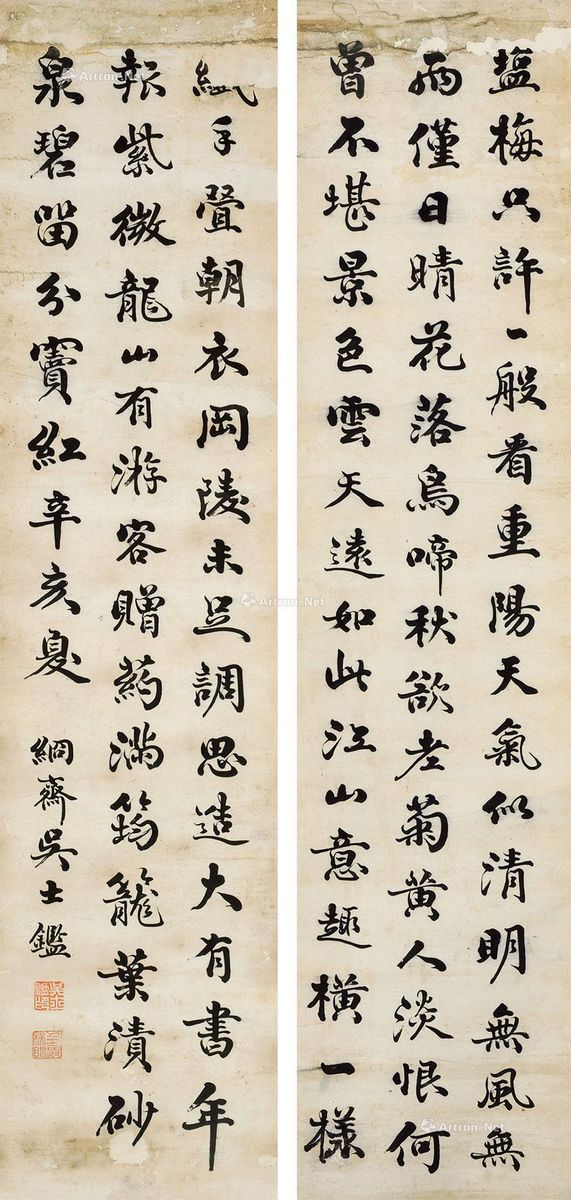 塩梅只許一般看重陽天氣似清明無風無
雨僅日晴花落烏啼秋欲老菊黃人淡恨何
曾不堪景色雲天遠如此江山意趣橫一樣
手疊朝衣岡陵未足調思造大有書年
報紫微龍山有游客贈葯滿筠籠葉漬砂
泉碧留分竇紅辛亥夏 絅齋吳士鑑
Artron.Net
Artron.Net
Artron.Net
Artron.Net